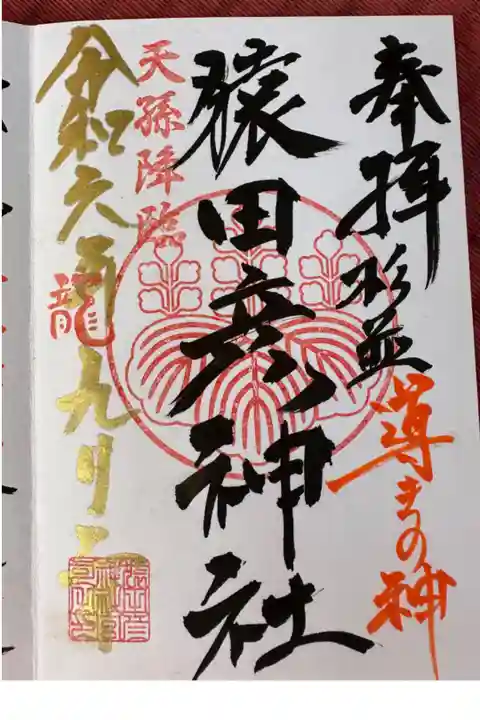 奉拝
杉並
導きの神
猿田彦神社
天孫降臨
令和六
龍
九月